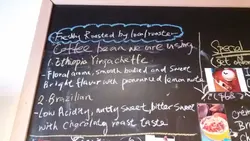 Freshly Roasted by local roaster
Coffee bean we are using
1. Ethiopia Yirgacheffe
- Floral aroma, smooth bodied and sweet
Bright flavor with pronounced lemon note
2. Brazilian
- Low Acidity, nutty sweet, bitter sweet
with chocolaty roast taste
Special
Set